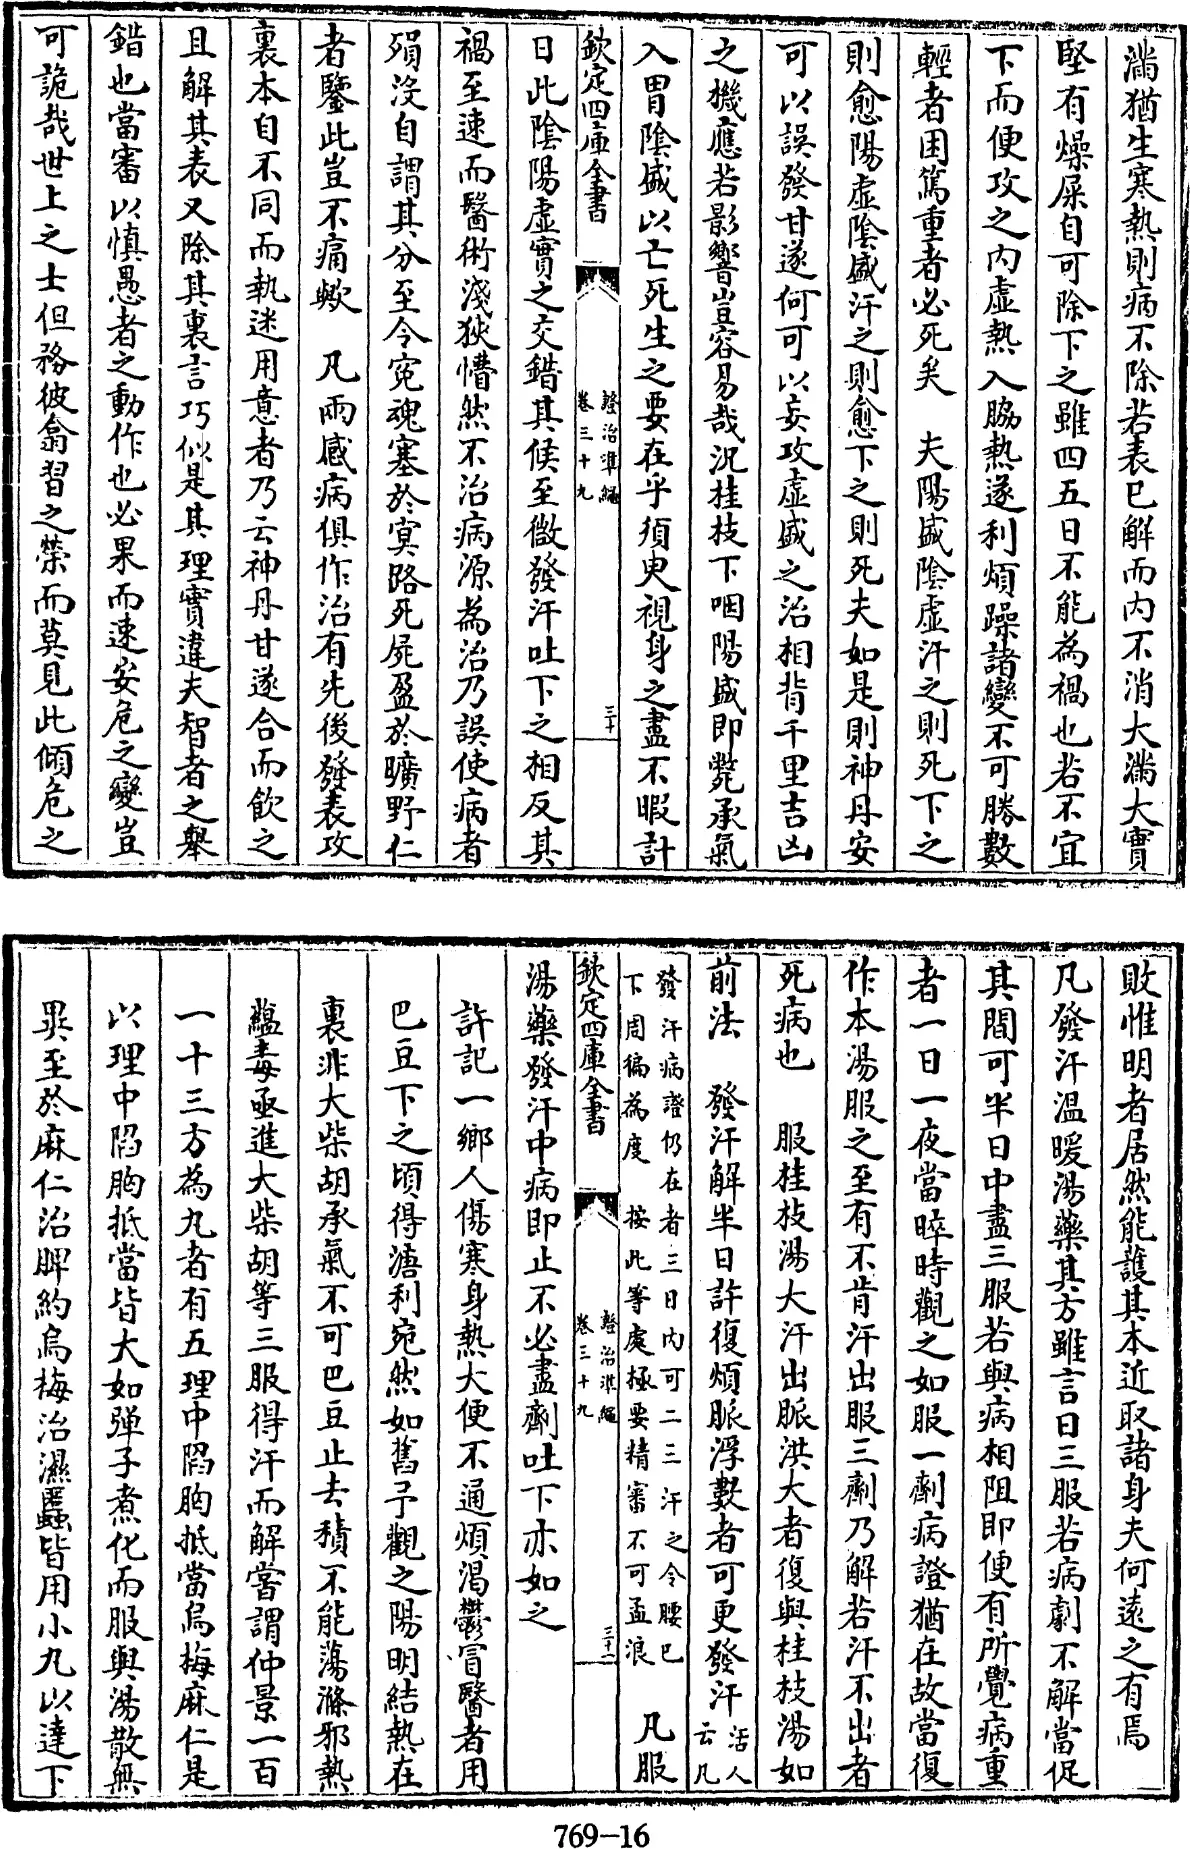 滿猶生寒熱則病不除若表已解而内不消大滿大實
堅有燥屎自可除下之雖四五日不能為禍也若不宜
下而便攻之内虛熱入脇熱遂利煩躁諸變不可勝數
輕者困篤重者必死矣　夫陽盛陰虛汗之則死下之
則愈陽虛陰盛汗之則愈下之則死夫如是則神丹安
可以誤發甘遂何可以妄攻虛盛之治相背千里吉凶
之機應若影響豈容易哉况桂枝下咽陽盛即斃承氣
入胃陰盛以亡死生之要在乎須臾視身之盡不暇計
欽定四庫全書
證治準繩
卷三十九
三十
日此陰陽虛實之交錯其候至微發汗吐下之相反其
禍至速而醫術淺狹懵然不治病源為治乃誤使病者
殞没自謂其分至今寃魂塞於冥路死屍盈於曠野仁
者鑒此豈不痛歟　凡兩感病俱作治有先後發表攻
裏本自不同而執迷用意者乃云神丹甘遂合而飲之
且解其表又除其裏言巧似是其理實違夫智者之舉
錯也當審以慎愚者之動作也必果而速安危之變豈
可詭哉世上之士但務彼翕習之榮而莫見此傾危之
敗惟明者居然能䕶其本近取諸身夫何遠之有焉
凡發汗温暖湯藥其方雖言日三服若病劇不解當促
其間可半日中盡三服若與病相阻即便有所覺病重
者一日一夜當晬時觀之如服一劑病證猶在故當復
作本湯服之至有不肯汗出服三劑乃解若汗不出者
死病也　服桂枝湯大汗出脈洪大者復與桂枝湯如
前法　發汗解半日許復煩脈浮數者可更發汗活人
云凡
發汗病證仍在者三日内可二三汗之令腰已
下周徧為度　按此等處極要精審不可孟浪　凡服
欽定四庫全書
證治準繩
卷三十九
三十一
湯藥發汗中病即止不必盡劑吐下亦如之
許記一鄉人傷寒身熱大便不通煩渴鬱冒醫者用
巴豆下之頃得溏利宛然如舊予觀之陽明結熱在
裏非大柴胡承氣不可巴豆止去積不能蕩滌邪熱
藴毒亟進大柴胡等三服得汗而解嘗謂仲景一百
一十三方為丸者有五理中陷胸抵當烏梅麻仁是
以理中陷胸抵當皆大如彈子煮化而服與湯散無
異至於麻仁治脾約烏梅治濕䘌皆用小丸以達下
769-16